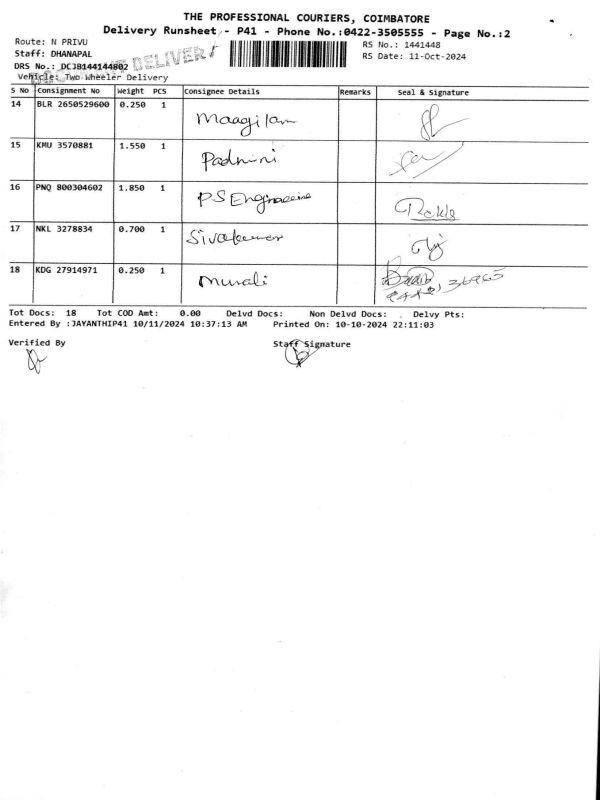 THE PROFESSIONAL COURIERS, COIMBATORE
Delivery Runsheet - P41 - Phone No.:0422-3505555 - Page No.:2
Route: N PRIVU
RS No.: 1441448
Staff: DHANAPAL
RS Date: 11-Oct-2024
DRS No.: DCJB144144802
DELIVERY
Vehicle: Two Wheeler Delivery
S No Consignment No Weight PCS Consignee Details Remarks Seal & Signature
14 BLR 2650529600 0.250 1 Maagilan
15 KMU 3570881 1.550 1 Padmini
16 PNQ 800304602 1.850 1 PS Engineering
17 NKL 3278834 0.700 1 Sivakumar
18 KDG 27914971 0.250 1 Murali
Tot Docs: 18 Tot COD Amt: 0.00 Delvd Docs: Non Delvd Docs: Delvy Pts:
Entered By :JAYANTHIP41 10/11/2024 10:37:13 AM Printed On: 10-10-2024 22:11:03
Verified By Staff Signature